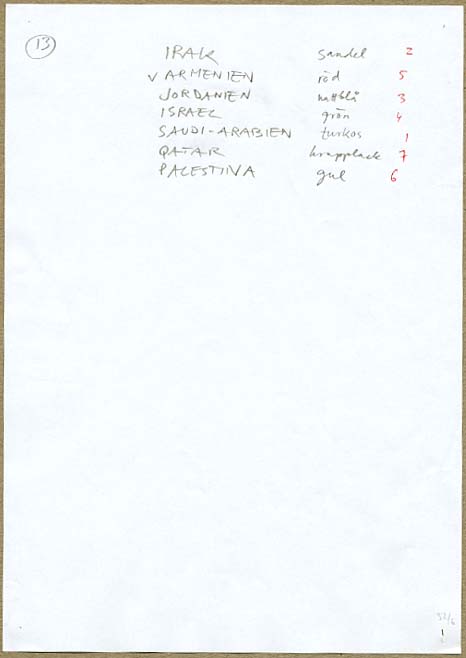 13
IRAK sandel 2
v ARMENIEN röd 5
JORDANIEN nattblå 3
ISRAEL grön 4
SAUDI-ARABIEN turkos 1
QATAR krapplack 7
PALESTINA gul 6
1